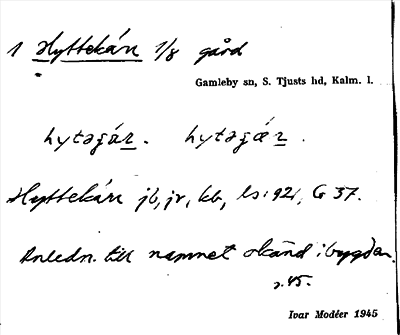 1 Hyttekärr 1/8 gård
Gamleby sn, S. Tjusts hd, Kalm. l.
Hyttekärr jb, jr, kb,
Anledn. till namnet okänd i bygden.
s. 45.
Ivar Modéer 1945